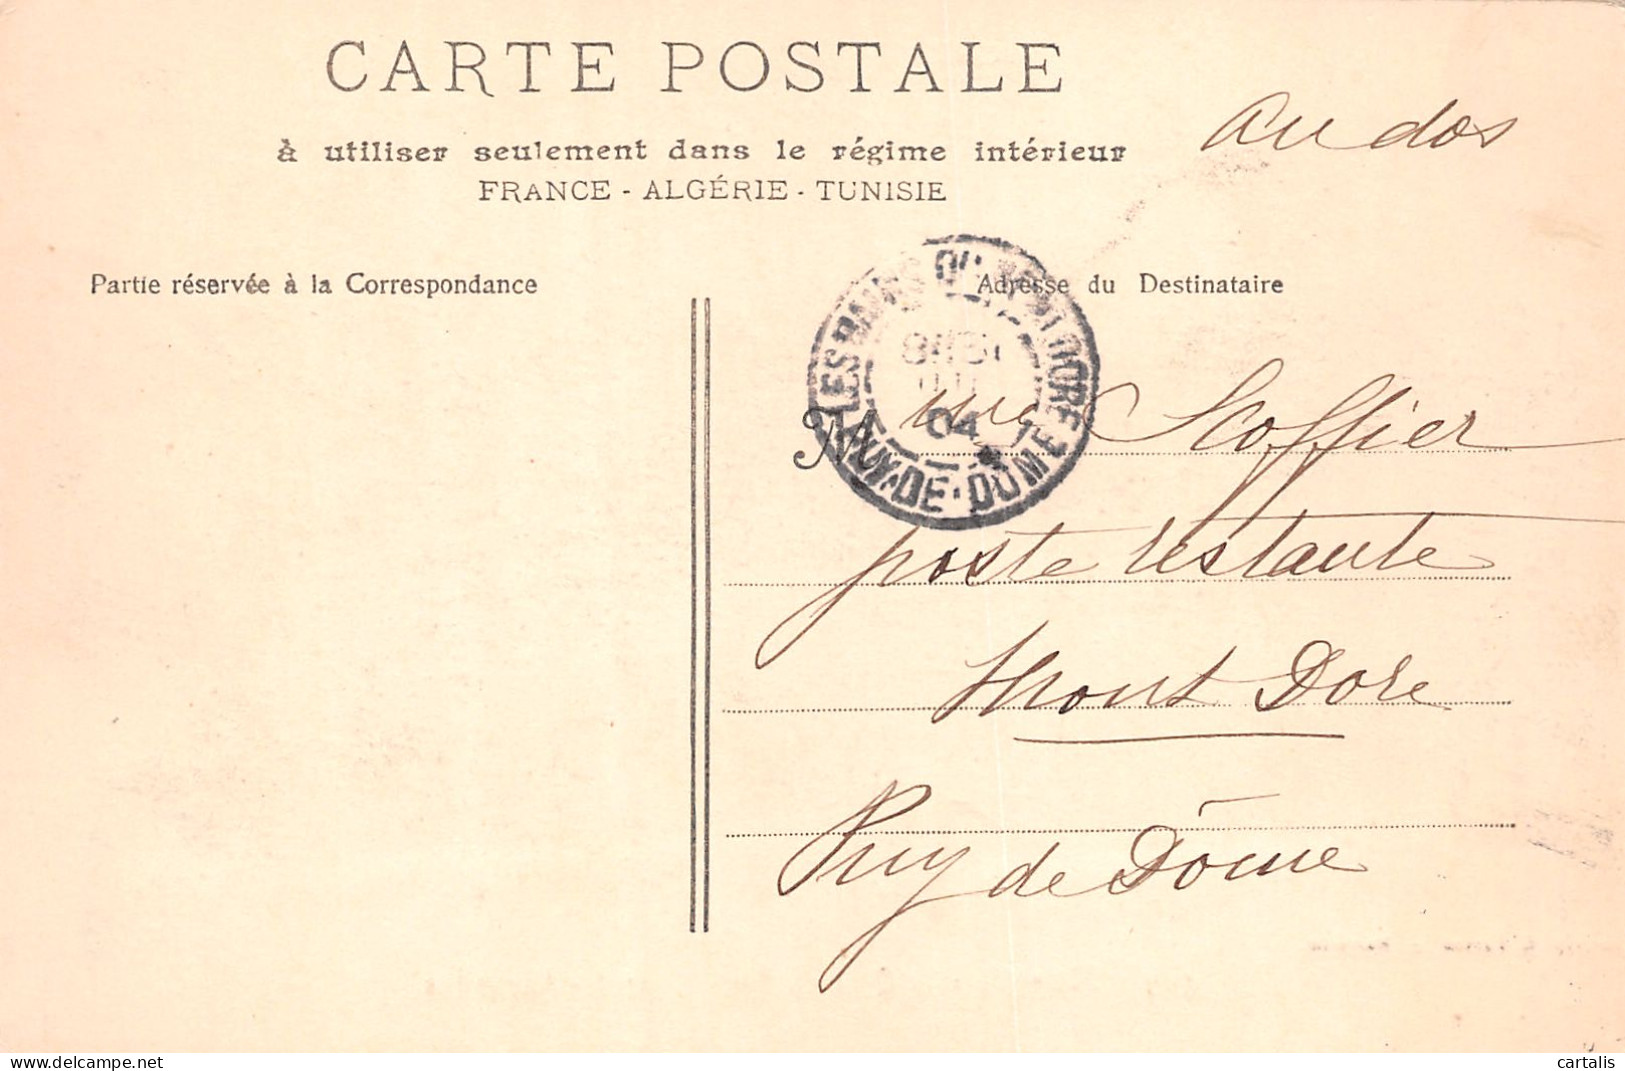 CARTE POSTALE
Au dos
à utiliser seulement dans le régime intérieur
FRANCE - ALGÉRIE - TUNISIE
Partie réservée à la Correspondance
Adresse du Destinataire
LES BAINS DU MONT DORE
04
PUY-DE-DOME
Mme Stoffier
poste restante
Mont Dore
Puy de Dôme
delcampe.net
cartalis